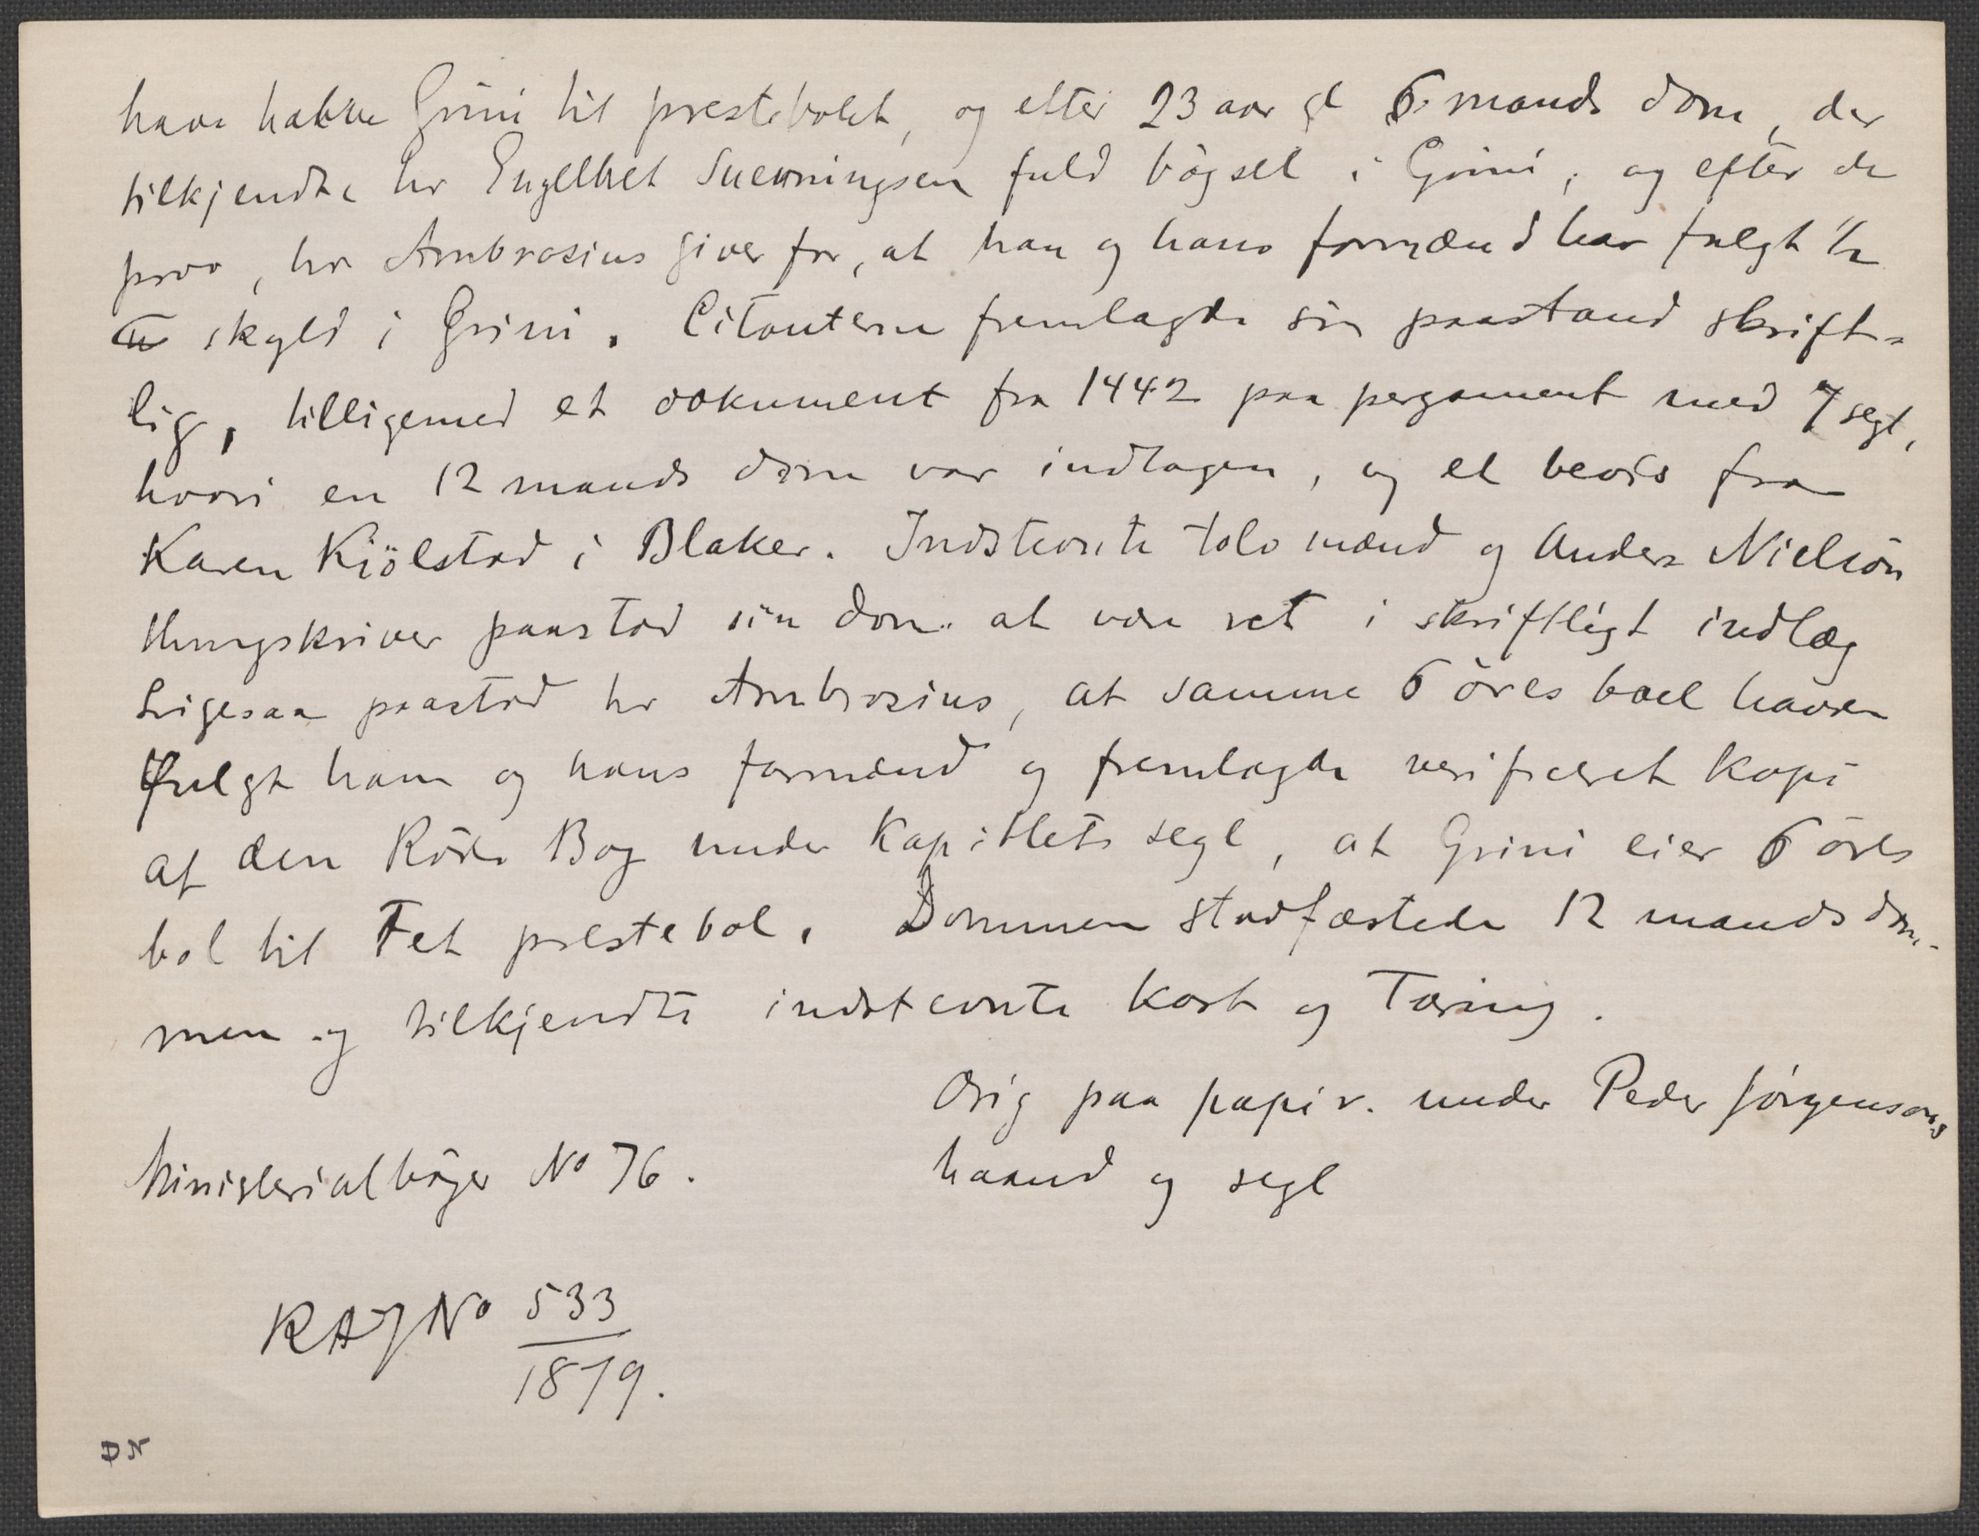 have hakke Grini til prestebolet, og efter 23 aar gl 6 mands dom, der
tilkjendte hr Engelbret Suenningsen fuld bögsel i Grini, og efter de
prov, hr Ambrosius giver for, at han og hans formænd har fulgt 1/2
skyld i Grini. Citanterne fremlagde sin paastand skrift-
lig, tilligemed et dokument fra 1442 paa pergament med 7 segl,
hvori en 12 mands dom var indtagen, og et bevis fra
Karen Kiölstad i Blaker. Indstevnte tolv mænd og Anders Nielsön
thingskriver paastod sin dom at være ret i skriftligt indlæg
Ligesaa paastod hr Ambrosius, at samme 6 öres boel haver
fulgt ham og hans formænd og fremlagde verificeret kopi
af den Röde Bog under Kapitlets segl, at Grini eier 6 öres
bol til Fet prestebol. Dommen stadfæstede 12 mands dom-
men og tilkjendte indstevnte Kost og Tæring.
Orig paa papir. under Peder Jörgensöns
haand og segl
Ministerialböger No 76.
RAJNo 533
1879.
DN